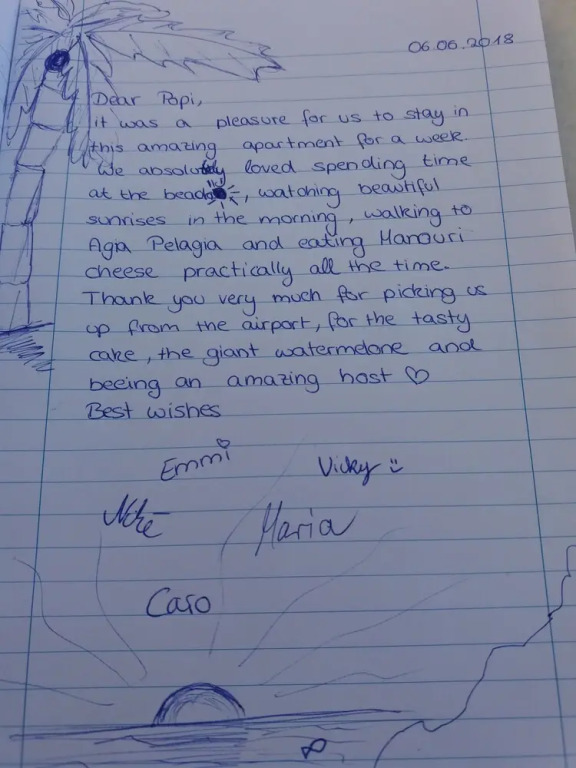 06.06.2018
Dear Popi,
it was a pleasure for us to stay in
this amazing apartment for a week.
We absolutely loved spending time
at the beach, watching beautiful
sunrises in the morning, walking to
Agia Pelagia and eating Manouri
cheese practically all the time.
Thank you very much for picking us
up from the airport, for the tasty
cake, the giant watermelone and
beeing an amazing host ♡
Best wishes
Emmi
Vicky :)
Maria
Caro